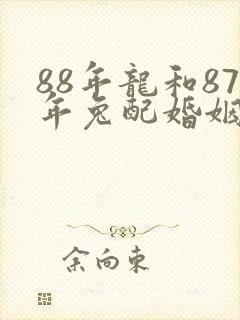 88年龍和87
年兔配婚姻
余向東